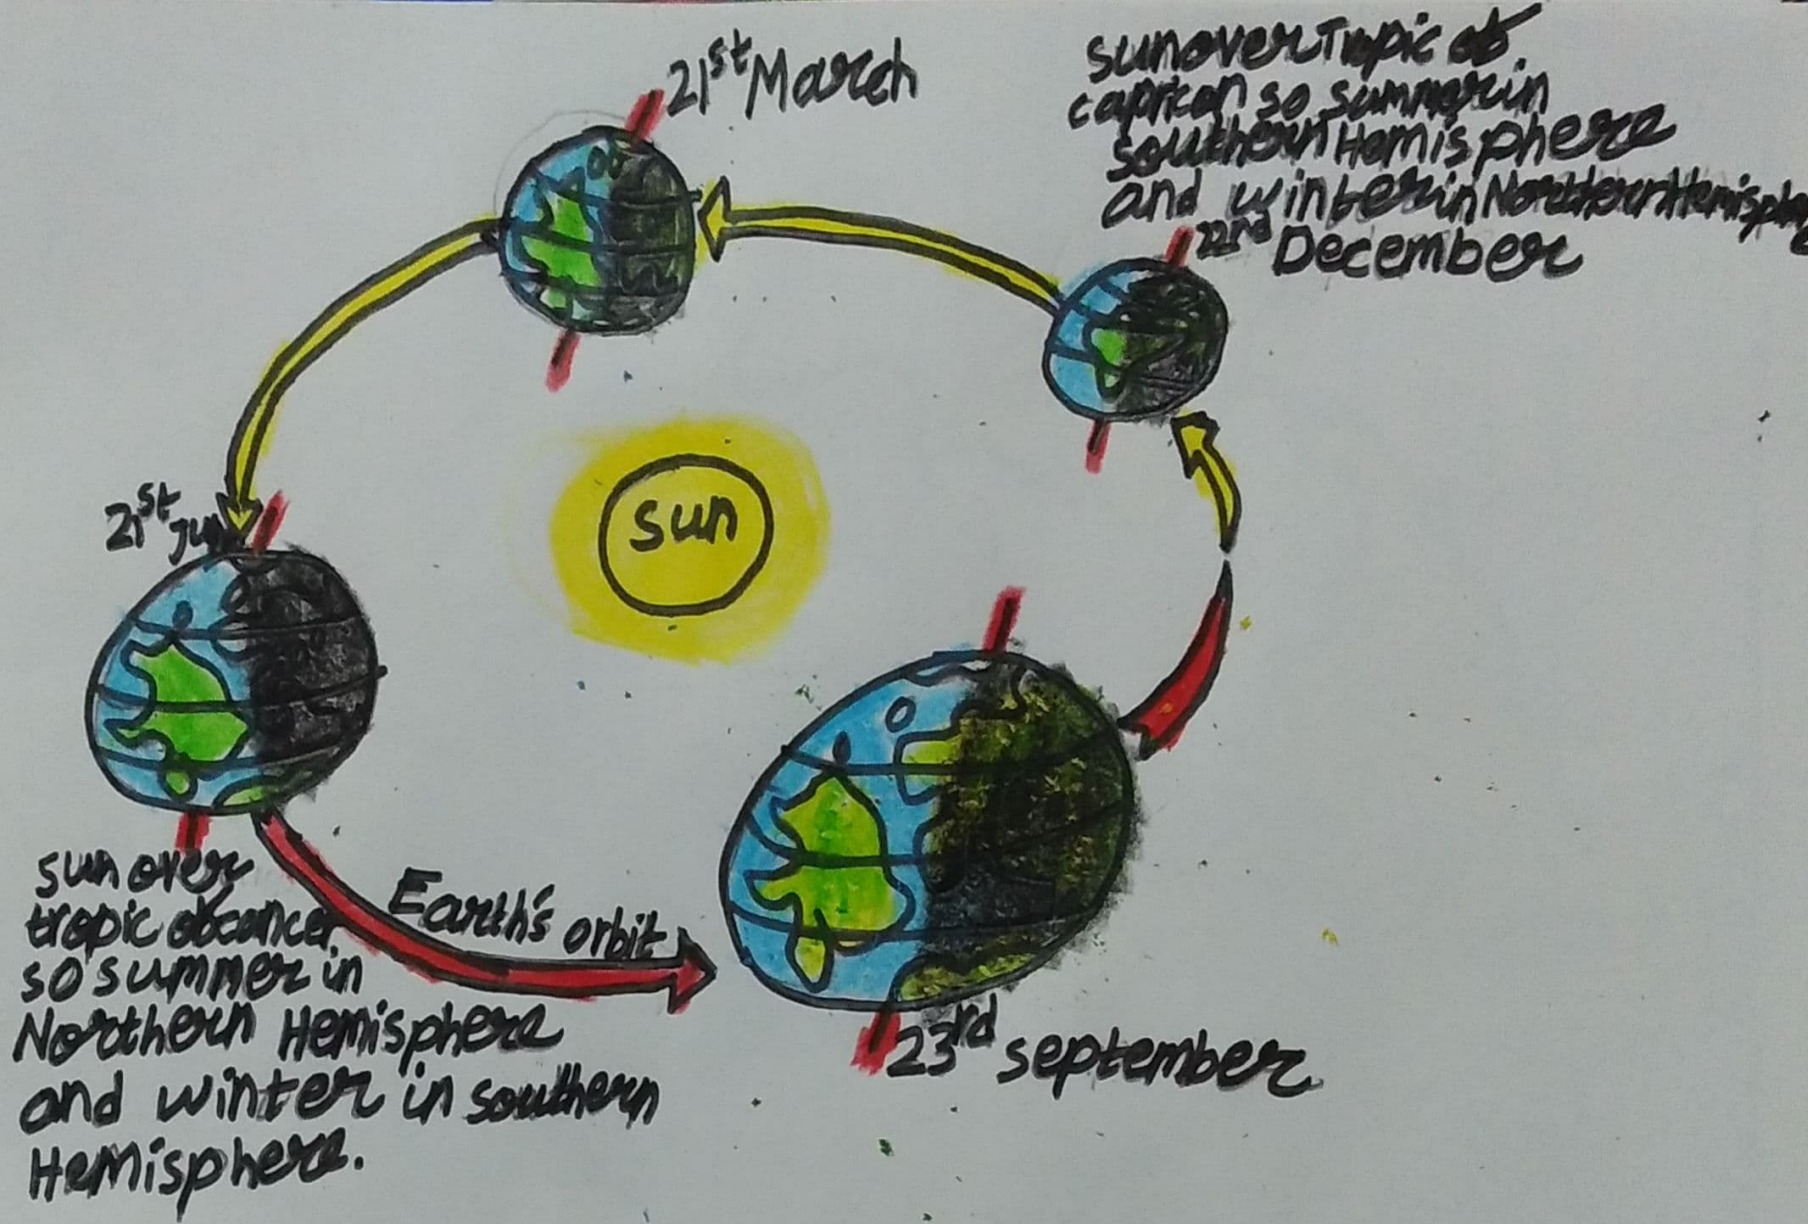 21st March
sun over Tropic of
caprican so summer in
southern Hemisphere
and winter in Northern Hemisphere
22nd December
sun
21st Jun
Earth's orbit
sun over
tropic of cancer
so summer in
Northern Hemisphere
and winter in southern
Hemisphere.
23rd september